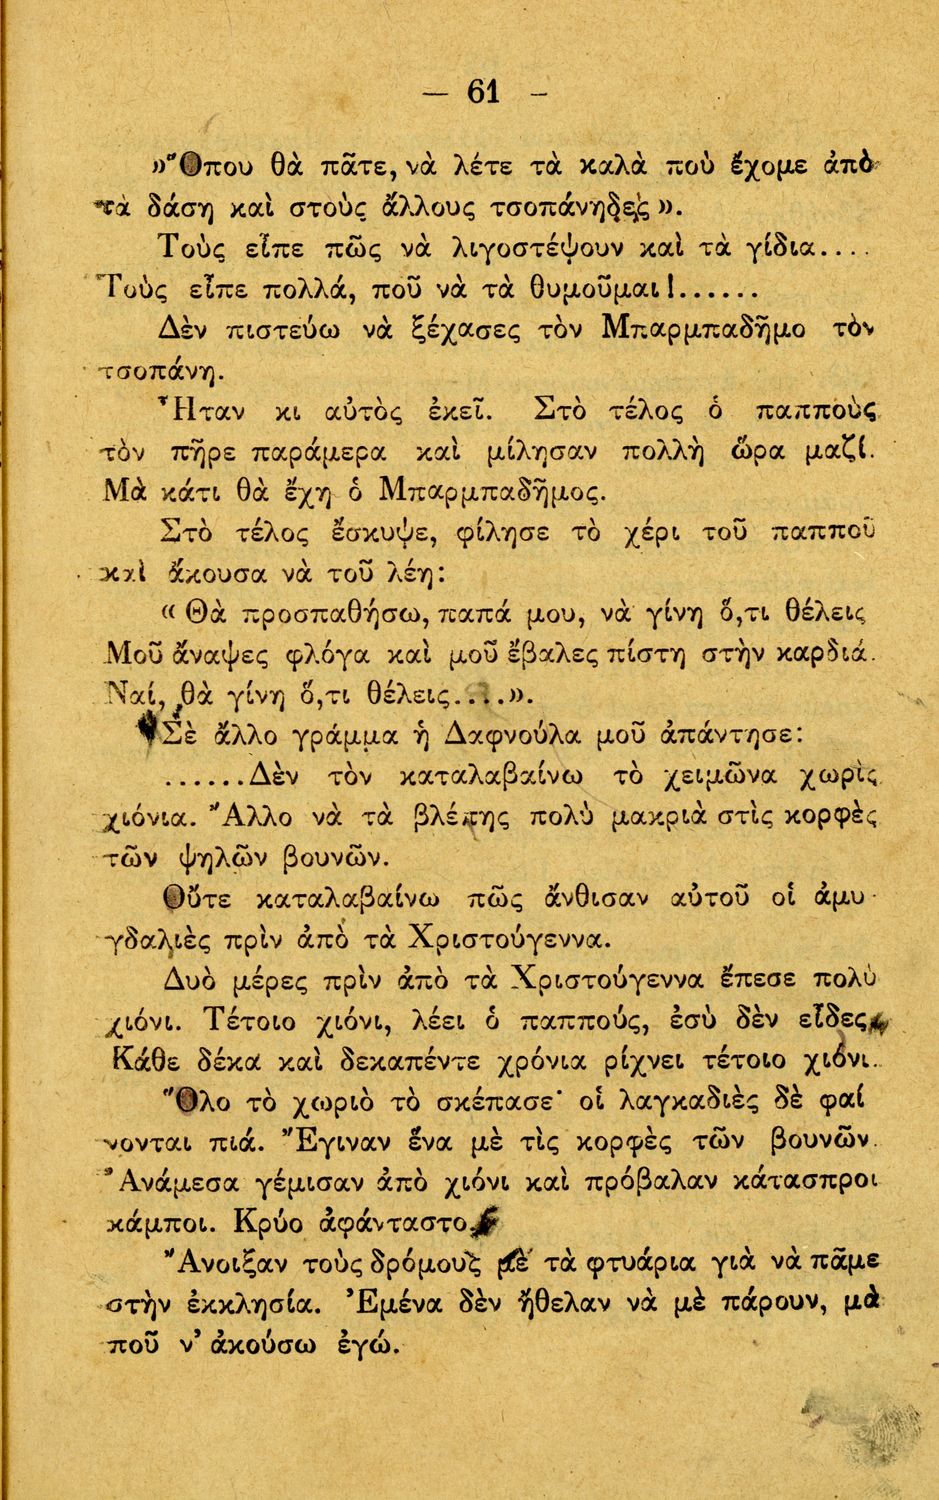 — 61 –
»Ὅπου θὰ πᾶτε, νὰ λέτε τὰ καλὰ ποὺ ἔχομε ἀπὸ
τὰ δάση καὶ στοὺς ἄλλους τσοπάνηδες».
Τοὺς εἶπε πῶς νὰ λιγοστέψουν καὶ τὰ γίδια....
Τοὺς εἶπε πολλά, ποῦ νὰ τὰ θυμοῦμαι!......
Δὲν πιστεύω νὰ ξέχασες τὸν Μπαρμπαδῆμο τὸν
τσοπάνη.
Ἦταν κι αὐτὸς ἐκεῖ. Στὸ τέλος ὁ παπποὺς
τὸν πῆρε παράμερα καὶ μίλησαν πολλὴ ὥρα μαζί.
Μὰ κάτι θὰ ἔχη ὁ Μπαρμπαδῆμος.
Στὸ τέλος ἔσκυψε, φίλησε τὸ χέρι τοῦ παπποῦ
καὶ ἄκουσα νὰ τοῦ λέη:
«Θὰ προσπαθήσω, παπά μου, νὰ γίνη ὅ,τι θέλεις
Μοῦ ἄναψες φλόγα καὶ μοῦ ἔβαλες πίστη στὴν καρδιά.
Ναί, θὰ γίνη ὅ,τι θέλεις....».
Σὲ ἄλλο γράμμα ἡ Δαφνούλα μοῦ ἀπάντησε:
......Δὲν τὸν καταλαβαίνω τὸ χειμῶνα χωρὶς
χιόνια. Ἄλλο νὰ τὰ βλέπης πολὺ μακριὰ στὶς κορφὲς
τῶν ψηλῶν βουνῶν.
Οὔτε καταλαβαίνω πῶς ἄνθισαν αὐτοῦ οἱ ἀμυ-
γδαλιὲς πρὶν ἀπὸ τὰ Χριστούγεννα.
Δυὸ μέρες πρὶν ἀπὸ τὰ Χριστούγεννα ἔπεσε πολὺ
χιόνι. Τέτοιο χιόνι, λέει ὁ παππούς, ἐσὺ δὲν εἶδες.
Κάθε δέκα καὶ δεκαπέντε χρόνια ρίχνει τέτοιο χιόνι.
Ὅλο τὸ χωριὸ τὸ σκέπασε· οἱ λαγκαδιὲς δὲ φαί
νονται πιά. Ἔγιναν ἕνα μὲ τὶς κορφὲς τῶν βουνῶν.
Ἀνάμεσα γέμισαν ἀπὸ χιόνι καὶ πρόβαλαν κάτασπροι
κάμποι. Κρύο ἀφάνταστο.
Ἄνοιξαν τοὺς δρόμους μὲ τὰ φτυάρια γιὰ νὰ πᾶμε
στὴν ἐκκλησία. Ἐμένα δὲν ἤθελαν νὰ μὲ πάρουν, μὰ
ποῦ ν' ἀκούσω ἐγώ.